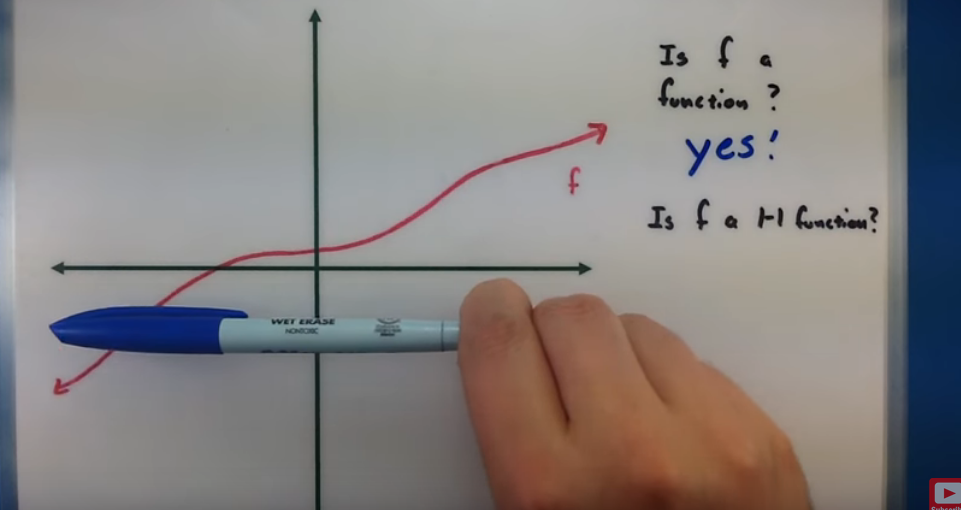 Is f a
function?
yes!
f
Is f a 1-1 function?
WET ERASE
NONTOXIC